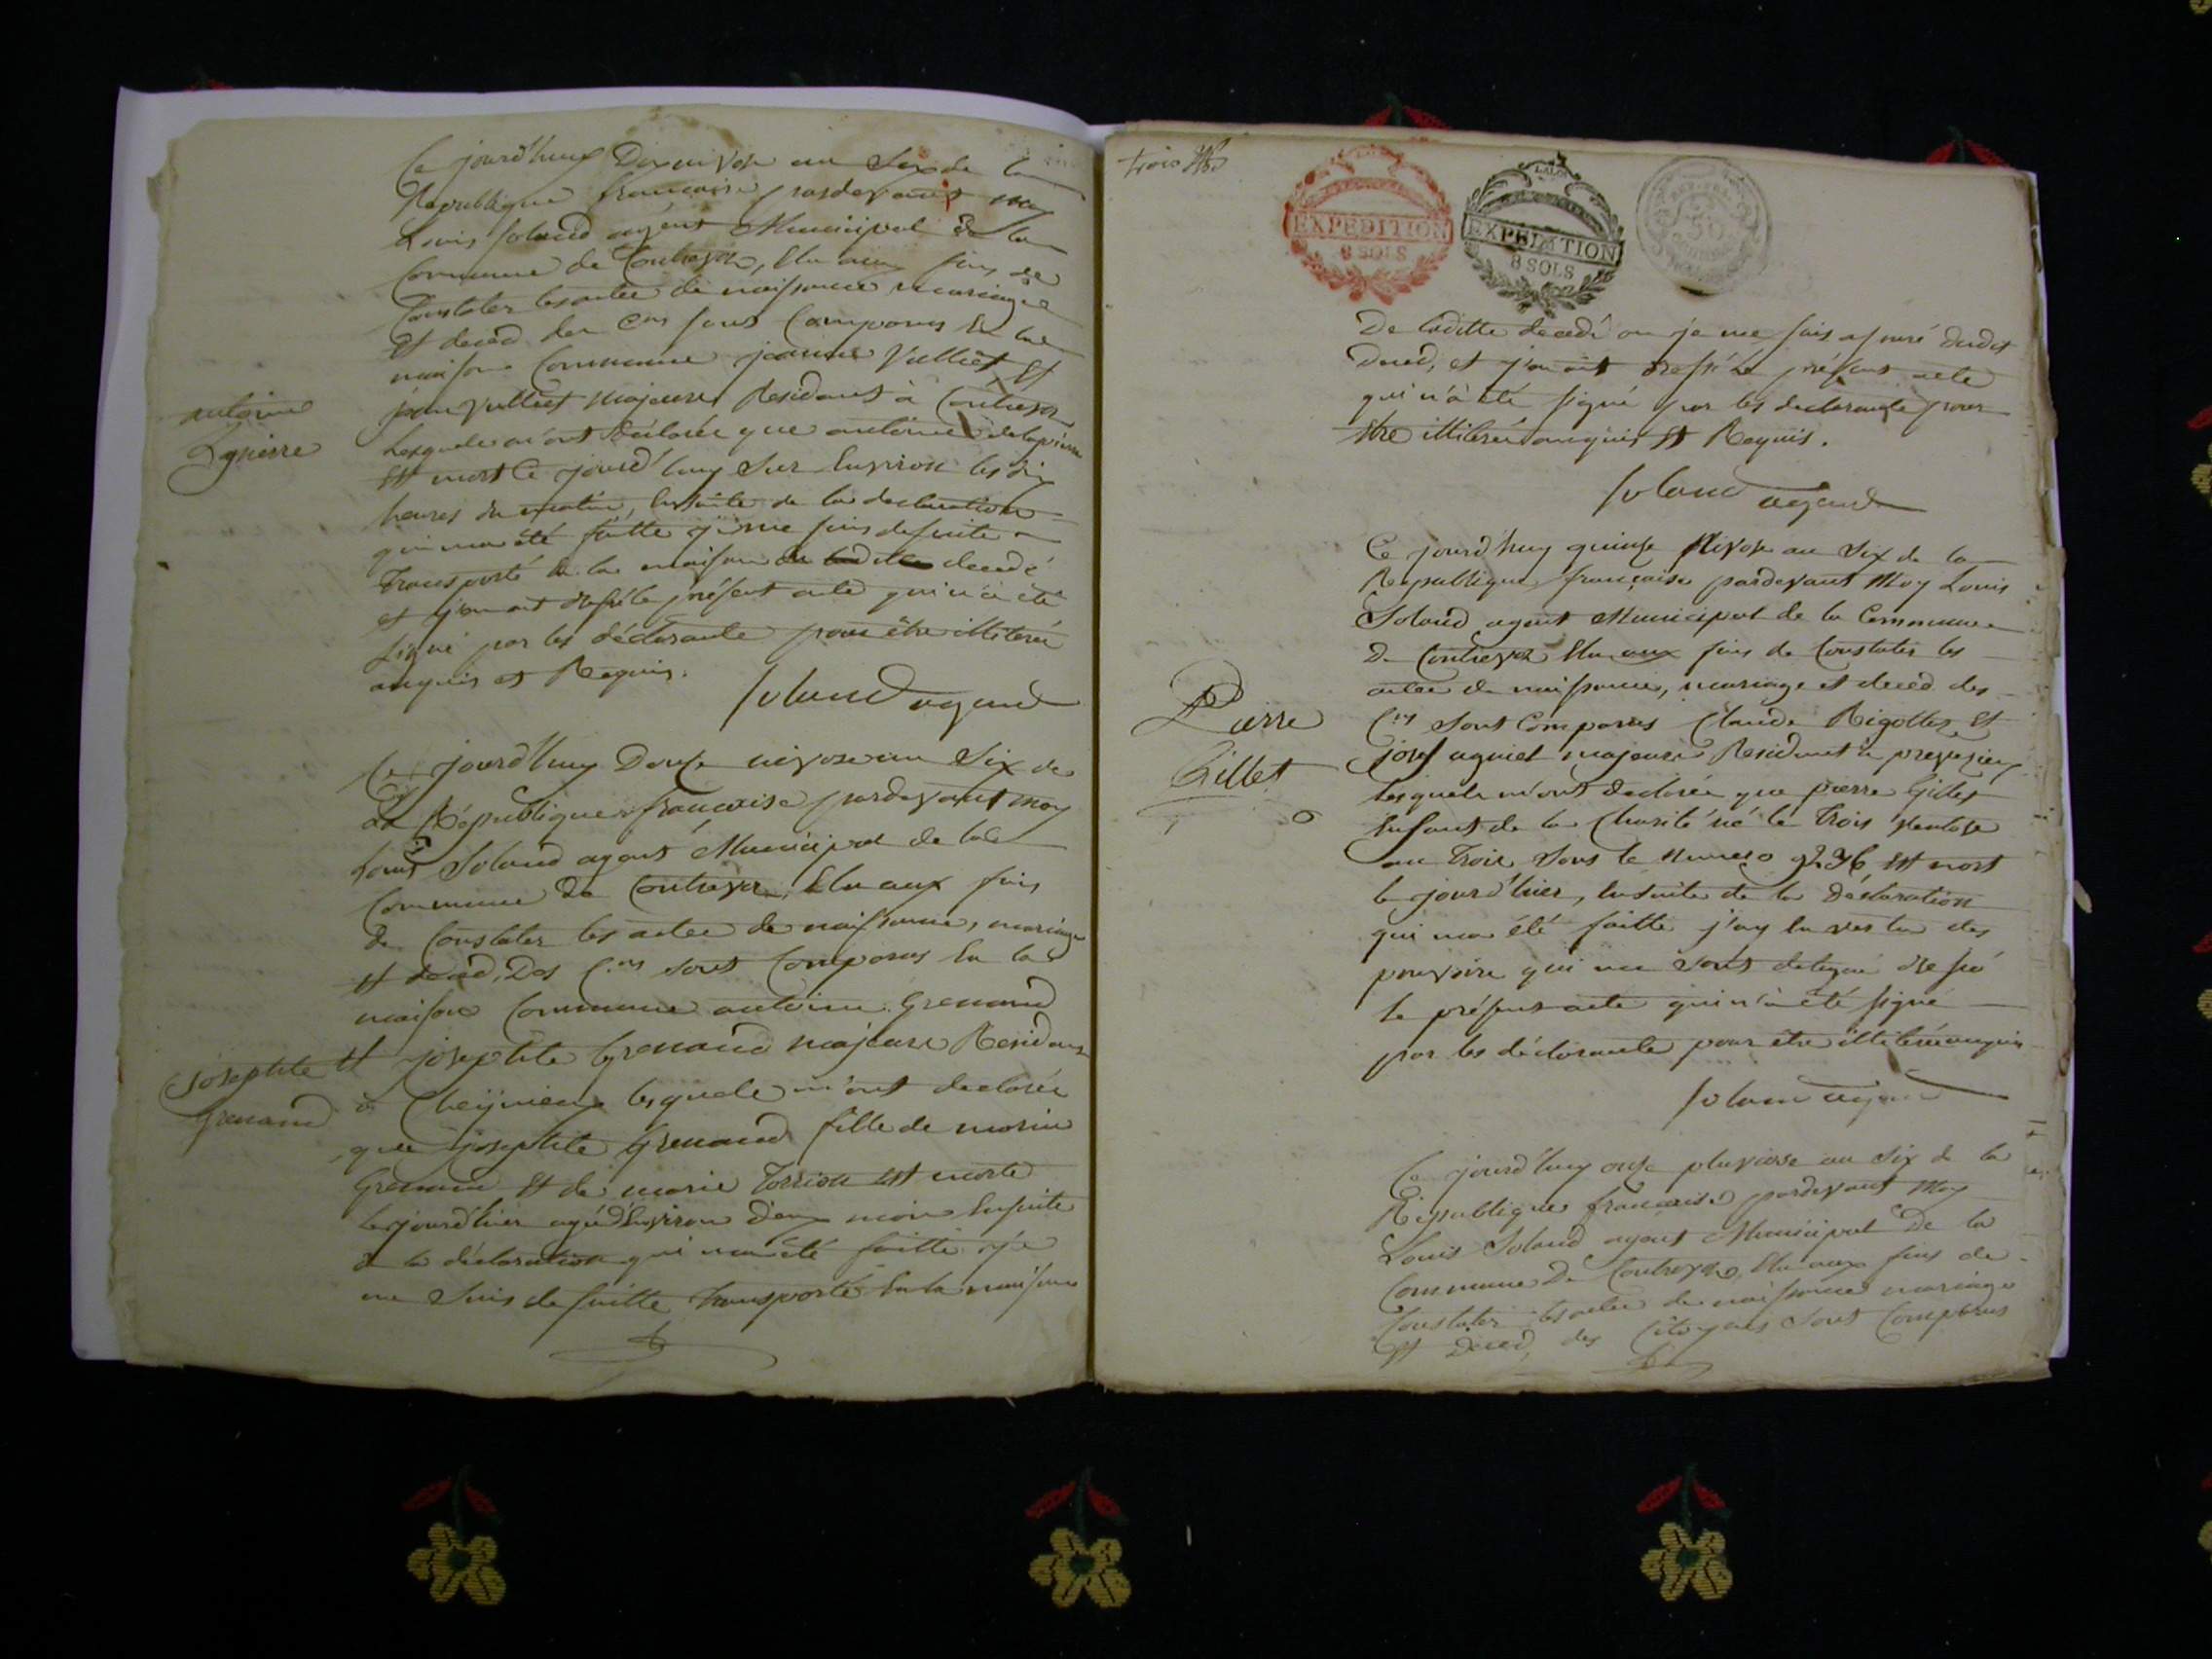 Ce jourd'huy Dix nivose an Six de la
Republique française pardevant moy
Louis Soland agent Municipal de la
Commune de Contrevoz, Elu aux fins de
Constater les actes de naissance mariage
Et deced des Cens sont Comparus En la
maison Commune jeanne Vulliet Et
jean Vulliet Majeurs Residants à Contrevoz
Lesquels m'ont déclarée que antoine delapierre
antoine
Lapierre
Est mort Ce jourd'huy Sur Environ les dix
heures du matin, Ensuite de la declaration
qui m'a été faitte je me suis de suite
Transporté en la maison du decedé
et j'en ait dressé le présent acte qui n'a été
signé par les déclarants pour être illiteré
enquis et Requis.
Soland agend
Ce jourd'huy Douse nivose an Six de
La République française pardevant moy
Louis Soland agent Municipal de la
Commune de Contrevoz, Elu aux fins
De Constater les actes de naissance, mariage
Et deced, Des Cens sont Comparus En la
maison Commune antoine Grenand
Josephte
Grenand
Et josephte Grenand majeurs Residants
à Cheÿnieu lesquels m'ont declarée
que josephte Grenand fille de
Grenand Et de marie est morte
Le jourd'hier agéd'Environ deux mois Ensuite
de la déclaration qui m'a été faitte je
me suis de suitte transporté En la maison
trois
EXPEDITION
8 SOLS
EXPEDITION
8 SOLS
De laditte decedé ou je me suis assuré dudit
Deced, et j'en ait dressé le présent acte
qui n'à été signé par les declarants pour
Etre illiteré enquis Et Requis.
Soland agend
Ce jourd'huy quinse Nivose an Six de la
Republique française pardevant Moy Louis
Soland agent Municipal de la Commune
De Contrevoz Elu aux fins de Constater les
actes de naissance, mariage et deced des
Pierre
Gillet
Cens sont Comparus Claude Rigollet Et
josef majeurs Residant à
lesquels m'ont declarée que pierre Gillet
Enfant de la Charité né le Trois Ventose
an Trois sous le numero est mort
le jourd'hier, Ensuite de la Déclaration
qui m'a été faitte j'ay En vertu des
pouvoirs qui me sont delegué dressé
le présent acte qui n'à été signé
par les déclarants pour etre illiteré enquis
Soland agend
Ce jourd'huy onse pluviose an Six de la
République française pardevant Moy
Louis Soland agent Municipal De la
Commune De Contrevoz, Elu aux fins de
Constater les actes de naissance mariage
Et Deced, des Citoyens sont Comparus